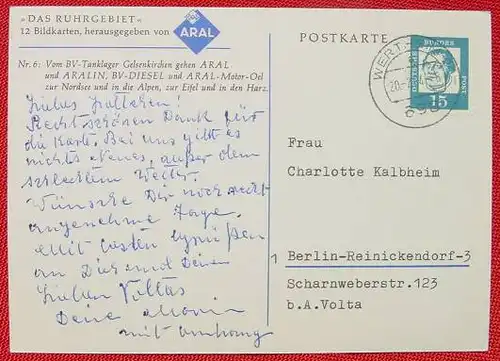 »DAS RUHRGEBIET«
12 Bildkarten, herausgegeben von ARAL
Nr. 6: Vom BV-Tanklager Gelsenkirchen gehen ARAL
und ARALIN, BV-DIESEL und ARAL-Motor-Oel
zur Nordsee und in die Alpen, zur Eifel und in den Harz.
Recht schönen Dank für
die Karte. Bei uns gibt es
nichts Neues, außer dem
schlechten Wetter.
Wünsche Dir noch recht
angenehme Tage.
Mit besten Grüßen
an Dich und Deine
Deine
mit
POSTKARTE
WERT
DEUTSCHE BUNDESPOST
15
Frau
Charlotte Kalbheim
1 Berlin-Reinickendorf-3
Scharnweberstr.123
b.A.Volta